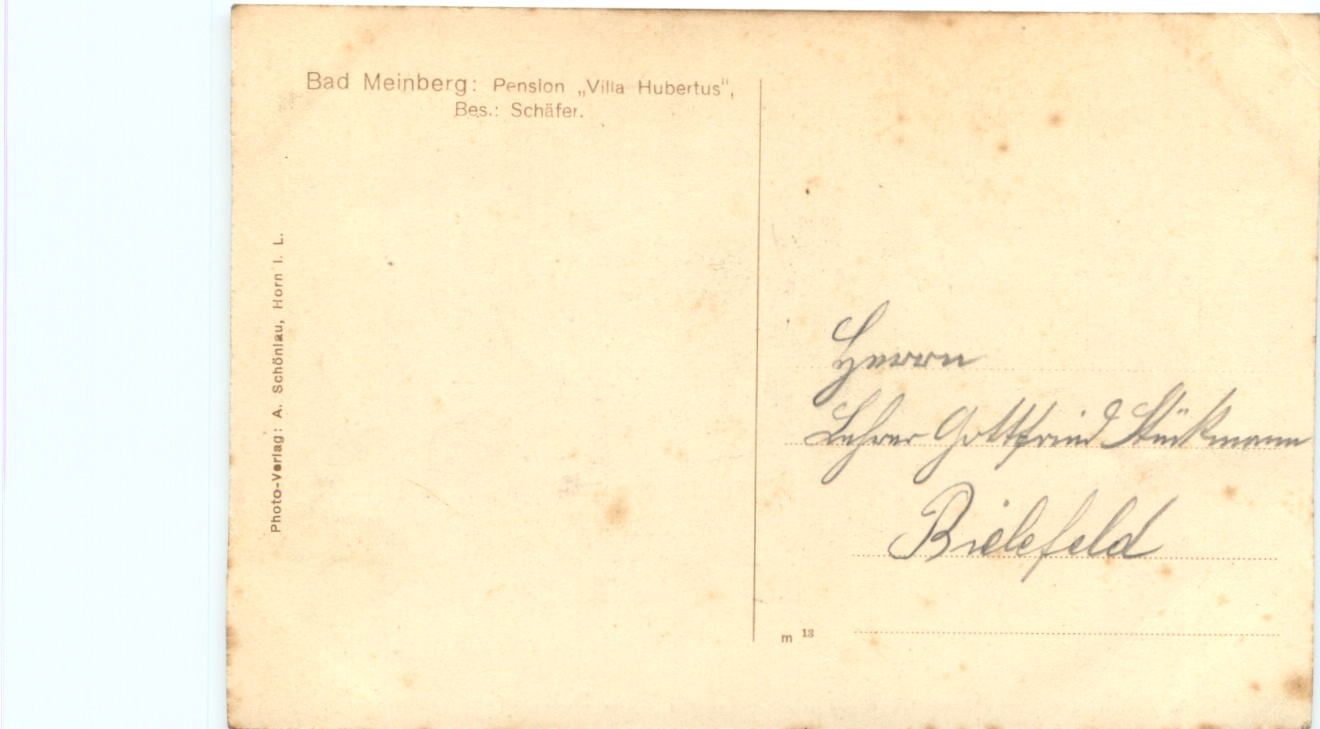 Bad Meinberg: Pension „Villa Hubertus",
Bes.: Schäfer.
Photo-Verlag: A. Schönlau, Horn i. L.
Herrn
Lehrer Gottfried
Bielefeld
m 13